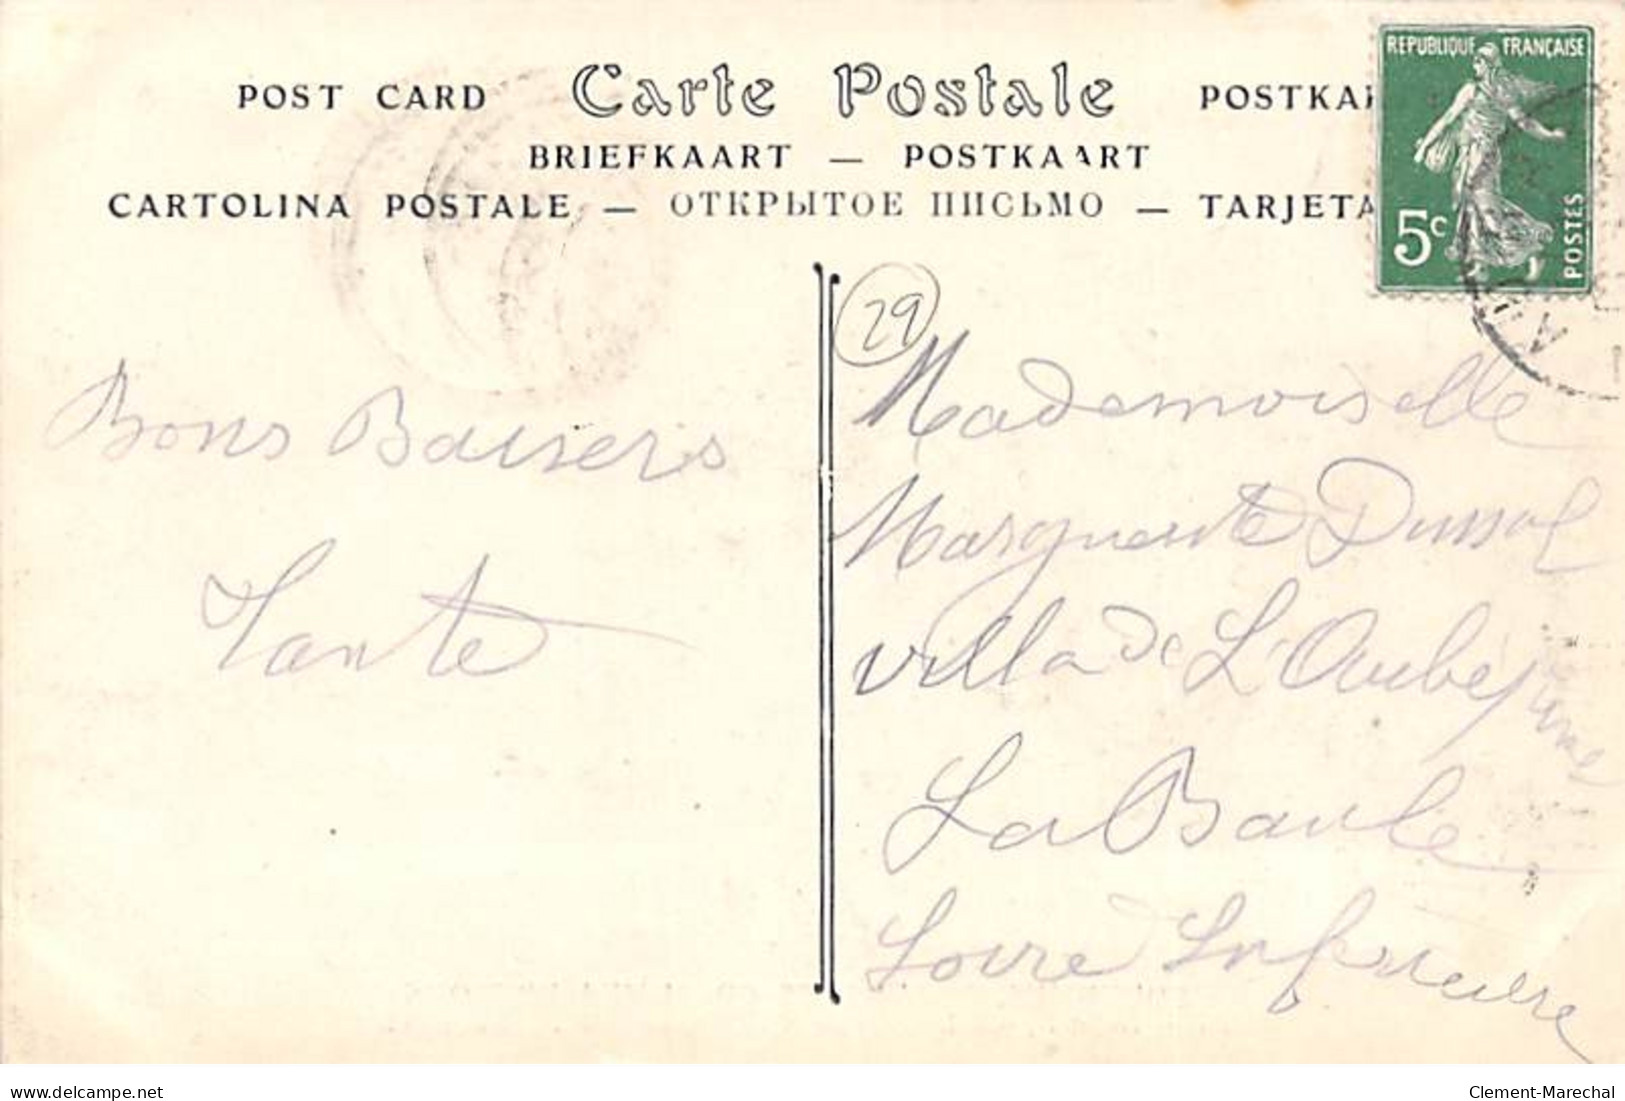 REPUBLIQUE FRANÇAISE
5c
POSTES
POST CARD Carte Postale POSTKAR
BRIEFKAART — POSTKAART
CARTOLINA POSTALE — ОТКРЫТОЕ ПИСЬМО — TARJETA
29
Bons Baisers
Tante
Mademoiselle
Marguerite Dussol
villa de L'Aubépine
La Baule
Loire Inférieure
delcampe.net
Clement-Marechal